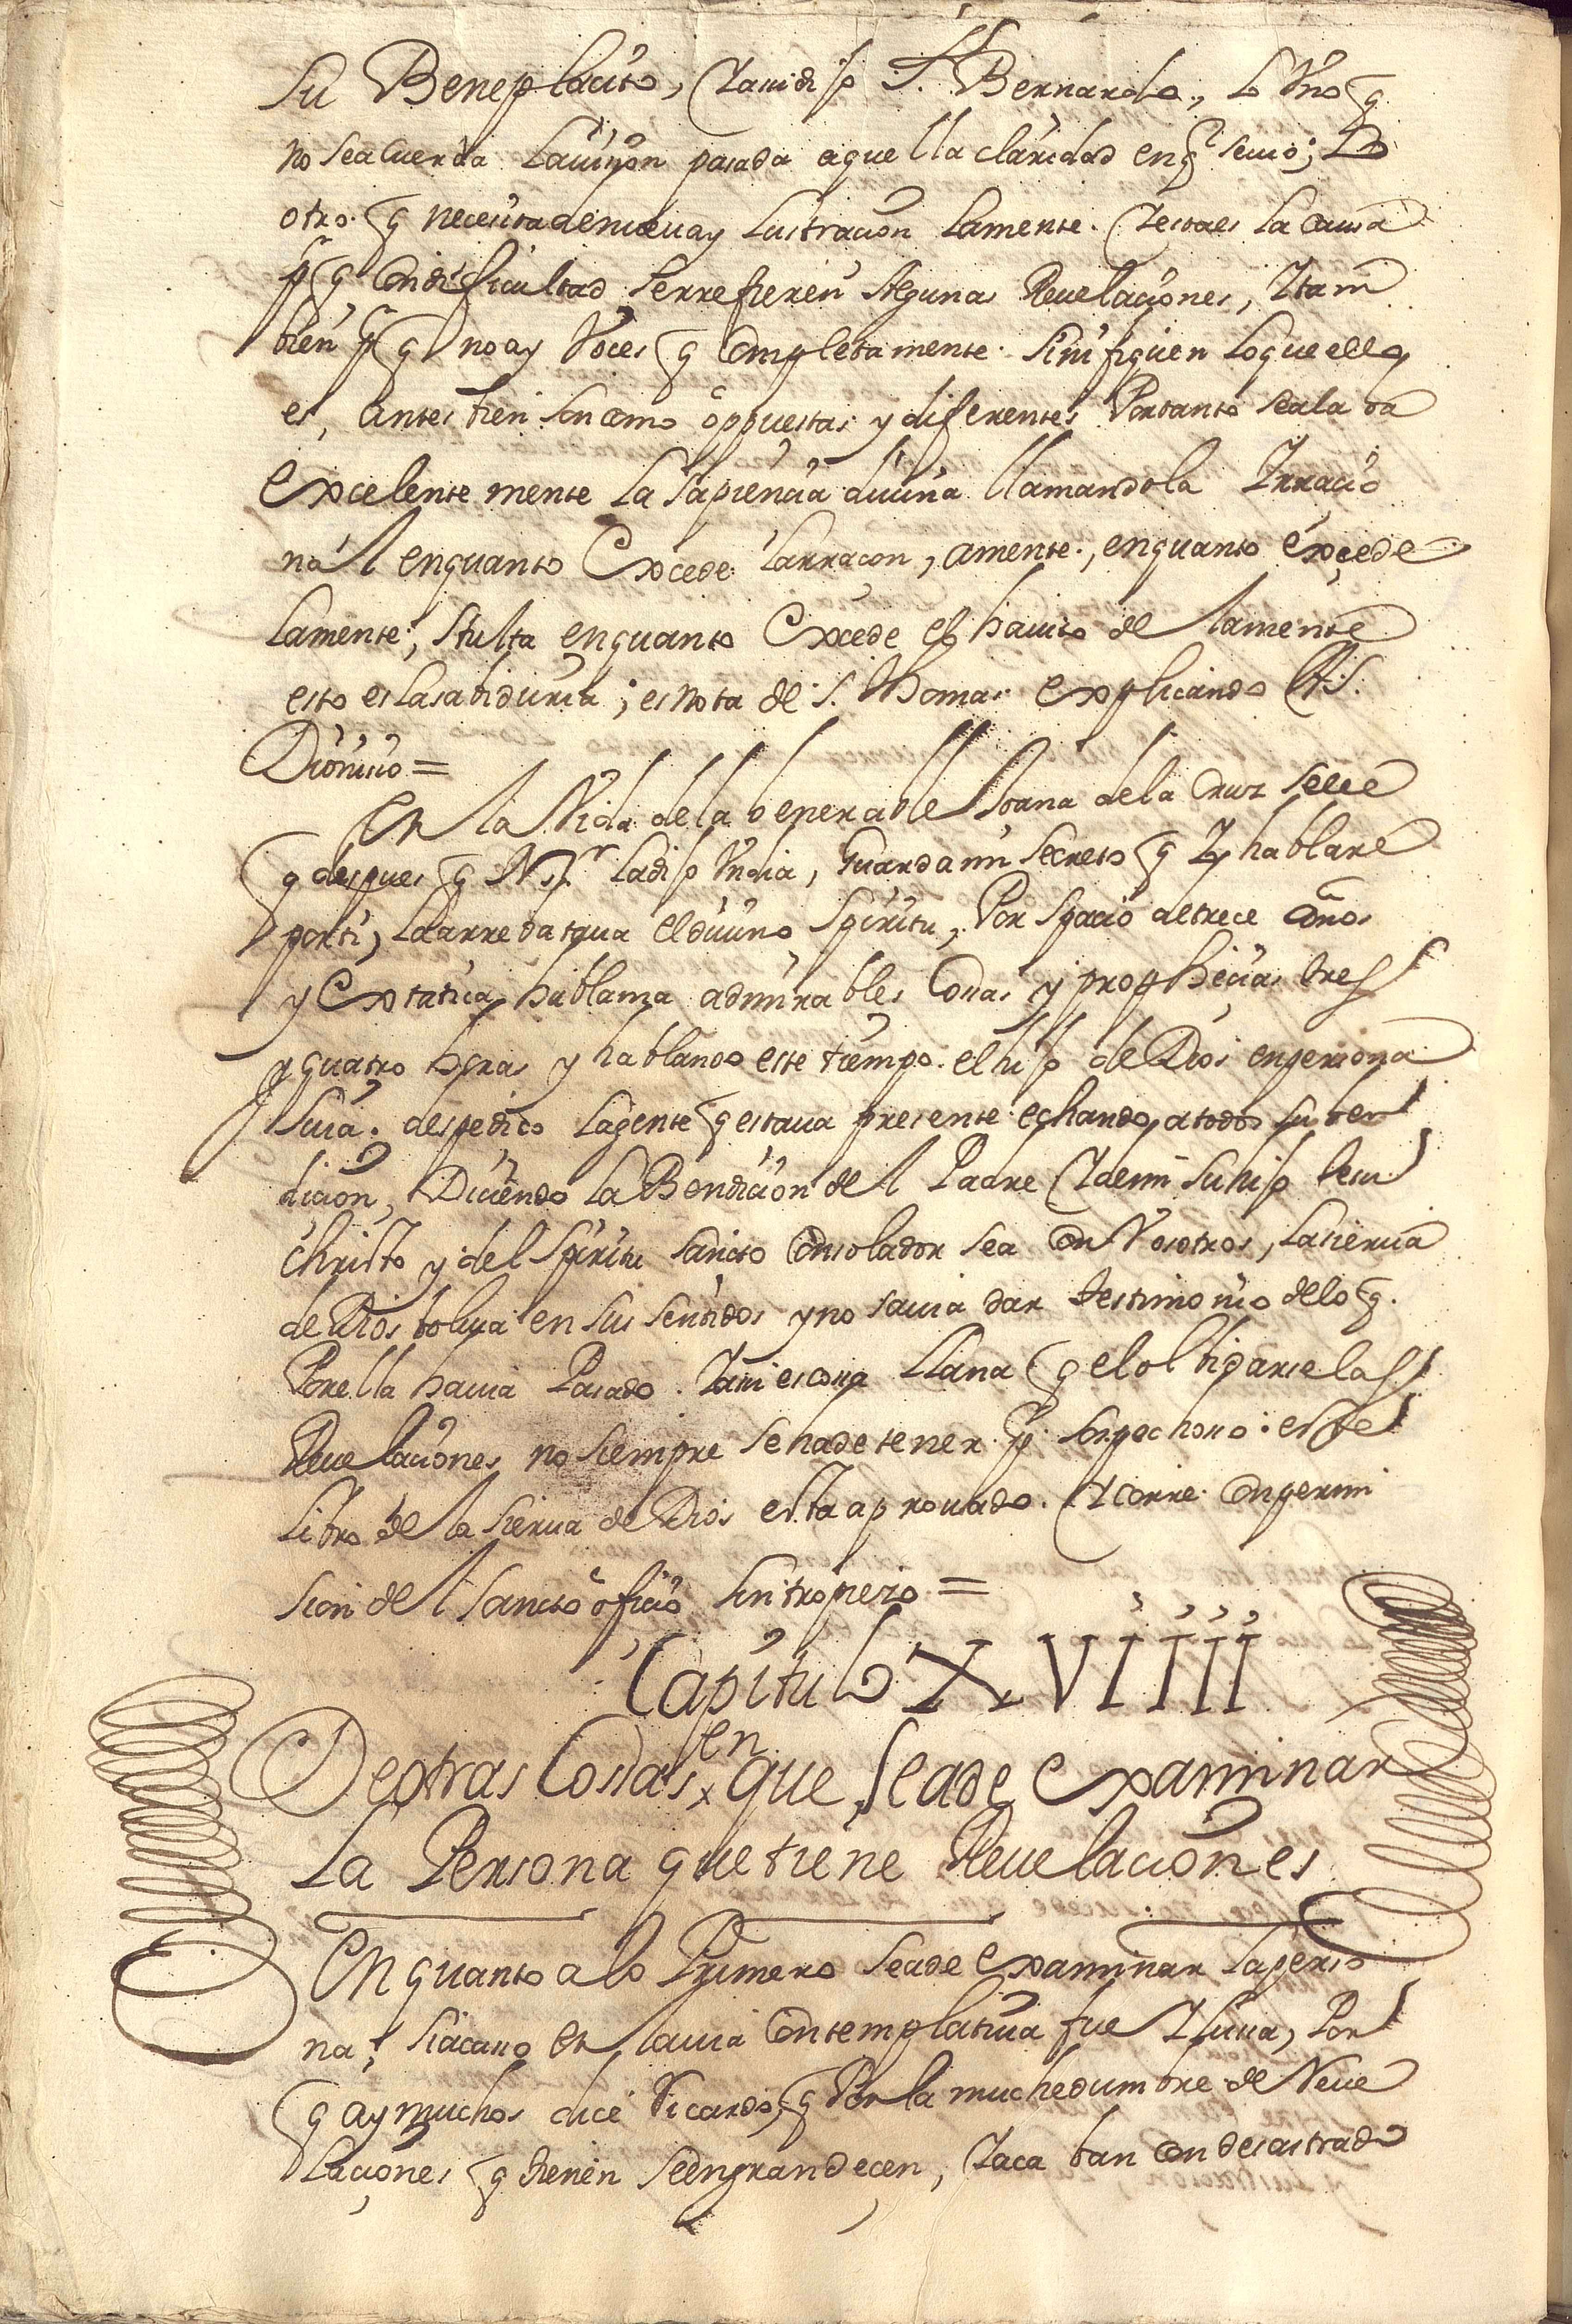 Su Beneplacito, Yanidijo S. Bernardo, lo Vno q
no seacuerda Lavision pasada aquella claridad en q̃ seuio; Lo
otro q necesita denueuay lustracion lamente. Yestaes la Causa
pr q Condificultad serrefieren Algunas Reuelaciones, Ytam
bien pr q no ay Voces q Completamente sinifiquen loque ella
es, antes bien son como oppuestas y diferentes Portanto sealaba
excelente mente la Sapiencia diuina llamandola Yrracio
nal enquanto Excede Larracon, amente, enquanto excede
lamente; stulta enquanto Excede el hauito de lamente
esto es lasabiduria; es Nota de S. Thomas explicando A S.
Dionisio =
En la Vida dela benerable Joana dela Cruz selee
q despues q N. Sr Ladijo Vndia, Guardami secreto q Yo hablare
porti, Laarrebataua eldiuino Spiritu, Por spacio de trece años
y Extatica hablaua admirables Cosas y prophecias tres
y quatro horas y hablando este tiempo el hijo de Dios enpersona
suia. despedido lagente q estaua presente echando atodos su ben
dicion, Diciendo La Bendicion del Padre Ydemi su hijo Jesu
Christo y del Spiritu Sancto Consolador sea Con Vosotros, lasierua
de Dios bolvia en sus sentidos y no sauia dar testimonio delo q.
Porella hauia Pasado. Yansi escosa Llana q elolbidarselas
Reuelaciones no siempre sehadetener pr sospechoso: este
Libro de la Sierua de Dios esta aprouado. Ycorre Conpermi
sion del Sancto oficio sintropiezo =
Capitulo XVIIII
De otras Cossas en que seade examinar
La Persona que tiene Reuelaciones
En quanto alo Primero seade examinar laperso
na; siacaso en lauia Contemplatiua fue Ylusa, Por
q ay muchos dice Ricardo, q Por la muchedumbre de Reue
laciones q tienen seengrandecen, Yaca ban Con desastrado